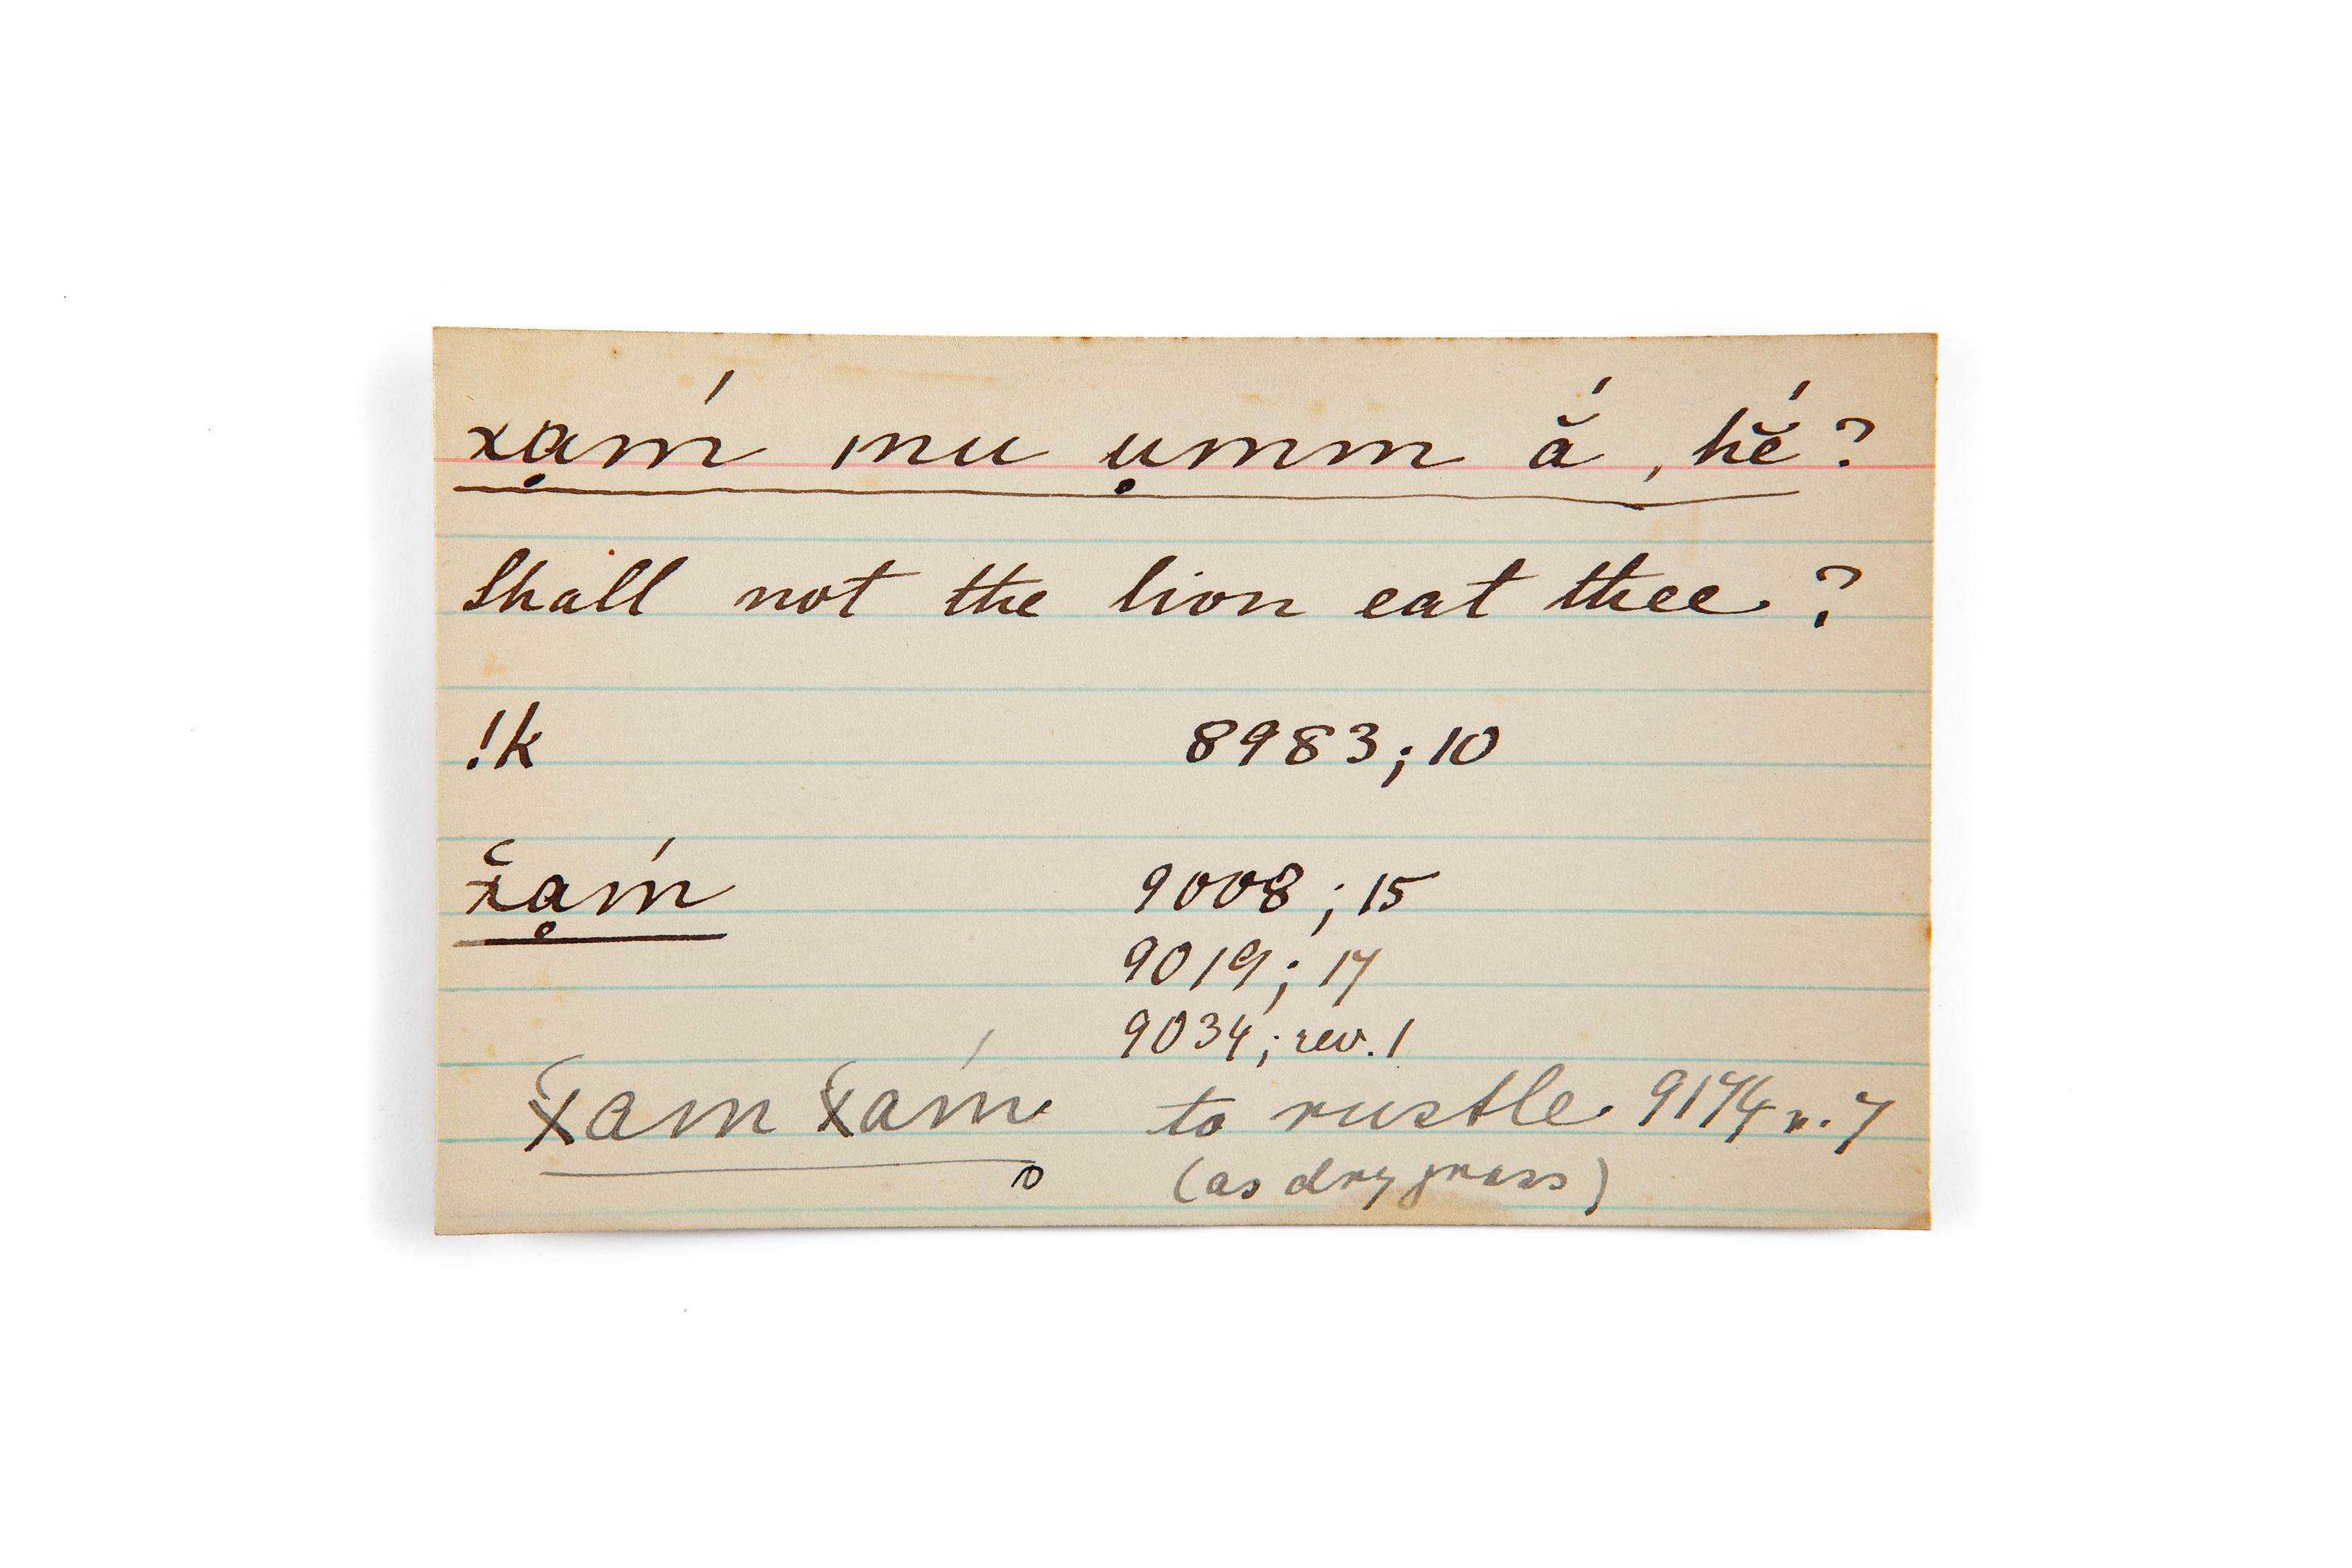 xạḿ mu ụmm ắ, hĕ́?
Shall not the lion eat thee?
!k 8983; 10
x̆ạḿ 9008; 15
9019; 17
9034; rev. 1
x̆am x̆aḿ to rustle 9174 r. 7
(as dry grass)